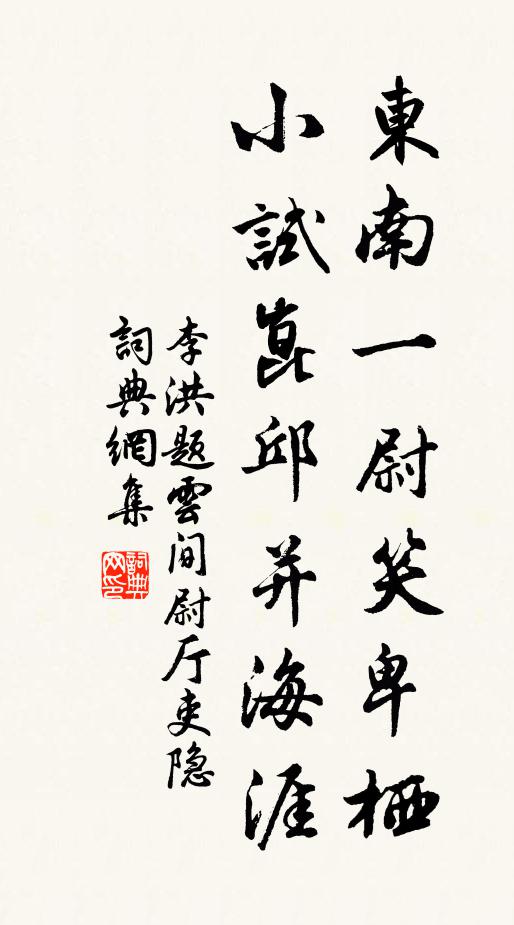 東南一尉笑卑栖
小試崑邱并海涯
李洪題雲间尉厅吏隐
詞典網集
詞典网印